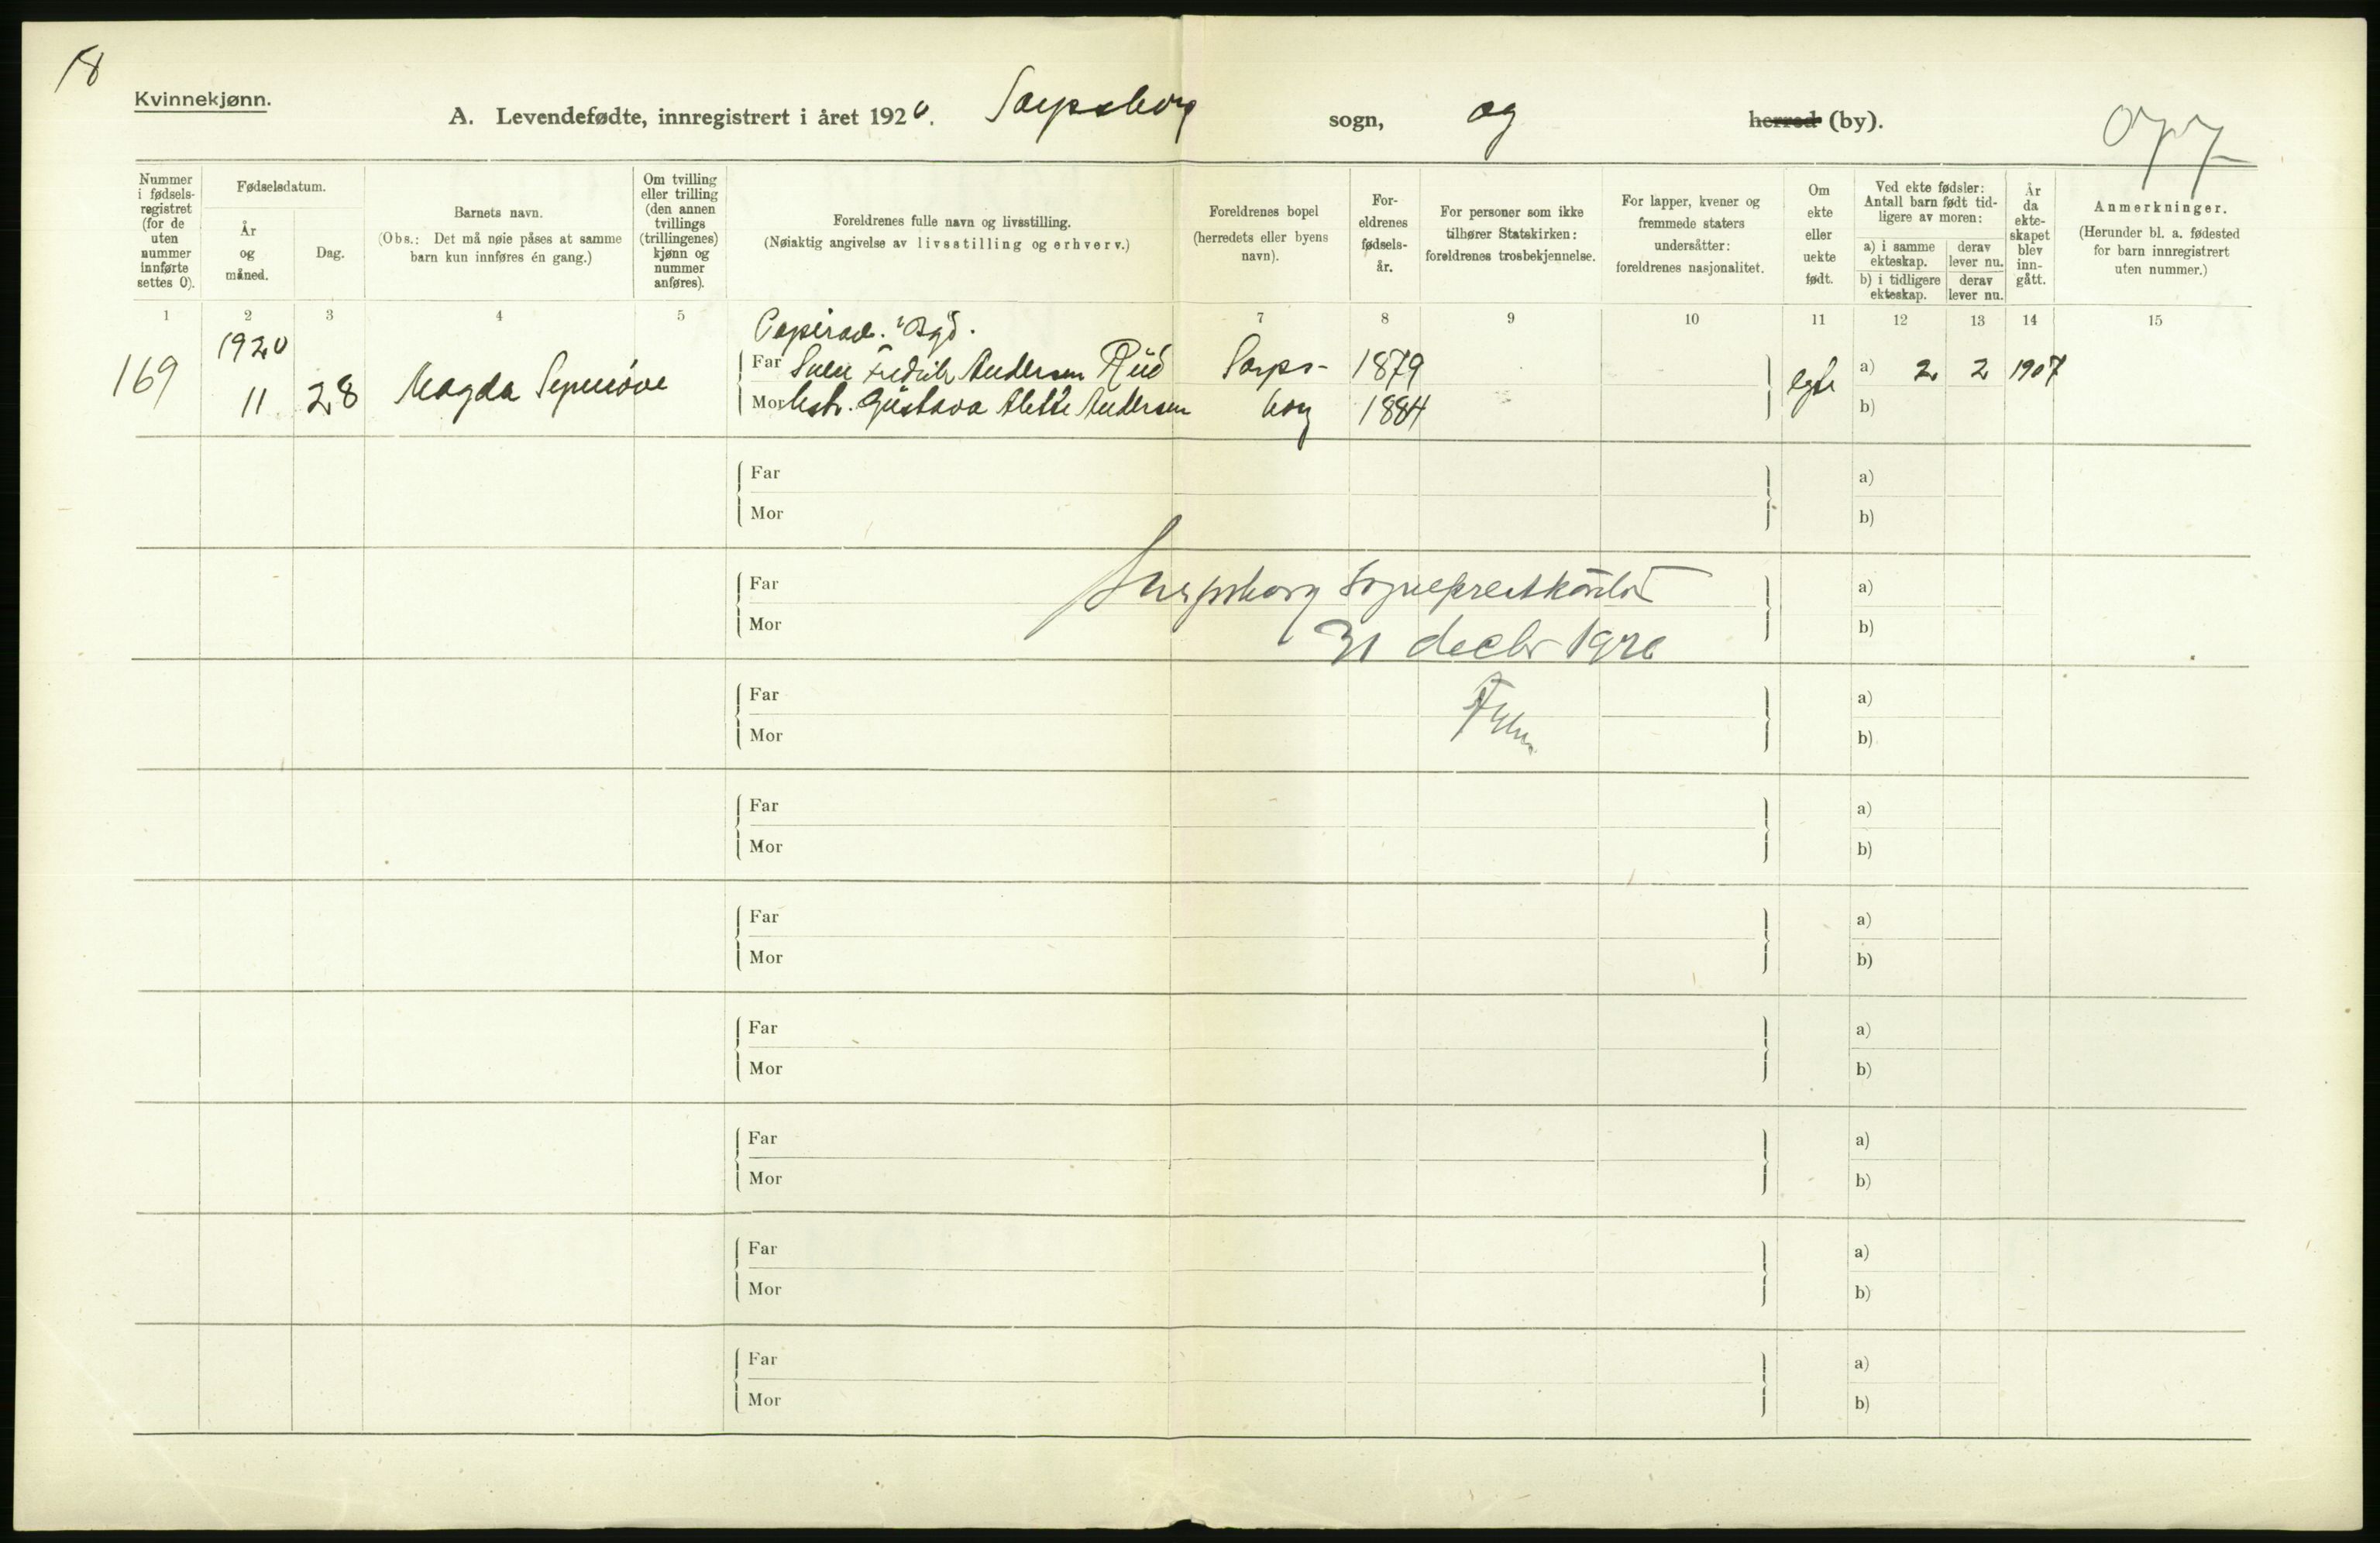 18
Kvinnekjønn.
A. Levendefødte, innregistrert i året 1920. Sarpsborg sogn, og herred (by).
Nummer i fødsels-registret (for de uten nummer innførte settes 0).
Fødselsdatum.
År og måned.
Dag.
Barnets navn.
(Obs.: Det må nøie påses at samme barn kun innføres én gang.)
Om tvilling eller trilling (den annen tvillings (trillingenes) kjønn og nummer anføres).
Foreldrenes fulle navn og livsstilling.
(Nøiaktig angivelse av livsstilling og erhverv.)
Foreldrenes bopel (herredets eller byens navn).
For-eldrenes fødsels-år.
For personer som ikke tilhører Statskirken: foreldrenes trosbekjennelse.
For lapper, kvener og fremmede staters undersåtter: foreldrenes nasjonalitet.
Om ekte eller uekte født.
Ved ekte fødsler: Antall barn født tid-ligere av moren:
a) i samme ekteskap.
derav lever nu.
b) i tidligere ekteskap.
derav lever nu.
År da ekte-skapet blev inn-gått.
Anmerkninger.
(Herunder bl. a. fødested for barn innregistrert uten nummer.)
1 2 3 4 5 7 8 9 10 11 12 13 14 15
1920
169 11 28 Magda
Far Fredrik Andersen Rud Sarps- 1879 a) 2 2 1907
Mor Hstr. Gustava Alette Andersen borg 1884 b)
Far a)
Mor b)
Far Sarpsborg sogneprestkontor a)
Mor 31 decbr 1920 b)
Far a)
Mor b)
Far a)
Mor b)
Far a)
Mor b)
Far a)
Mor b)
Far a)
Mor b)
Far a)
Mor b)
Far a)
Mor b)